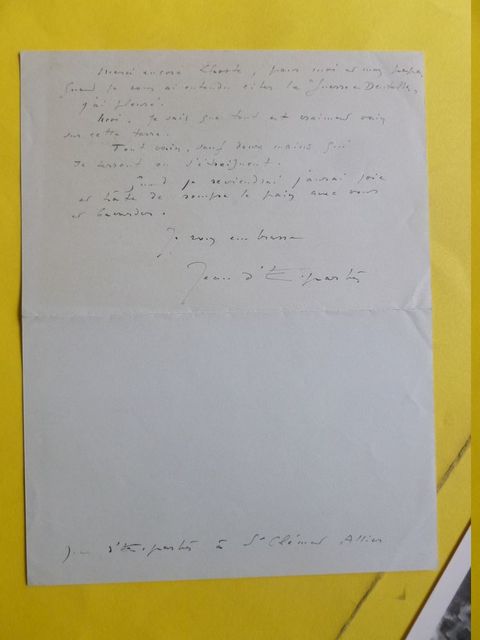 Merci encore Lhoste, pour moi et mes
Quand je vous ai entendu citer la "Guerre en Dentelles,
j'ai pleuré.
Moi. Je sais que tout est vraiment vain
sur cette terre.
Tout vain, sauf deux mains qui
se serrent ou s'étreignent.
Quand je reviendrai j'aurai joie
et hâte de rompre le pain avec vous
et bavarder.
Je vous embrasse
Jean d'Esparbès
Jean d'Esparbès à St Clément Allier